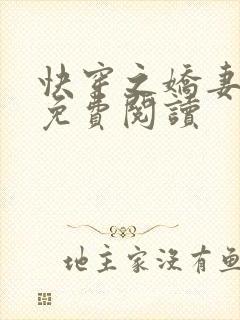 快穿之嬌妻
免費閱讀
地主家沒有魚